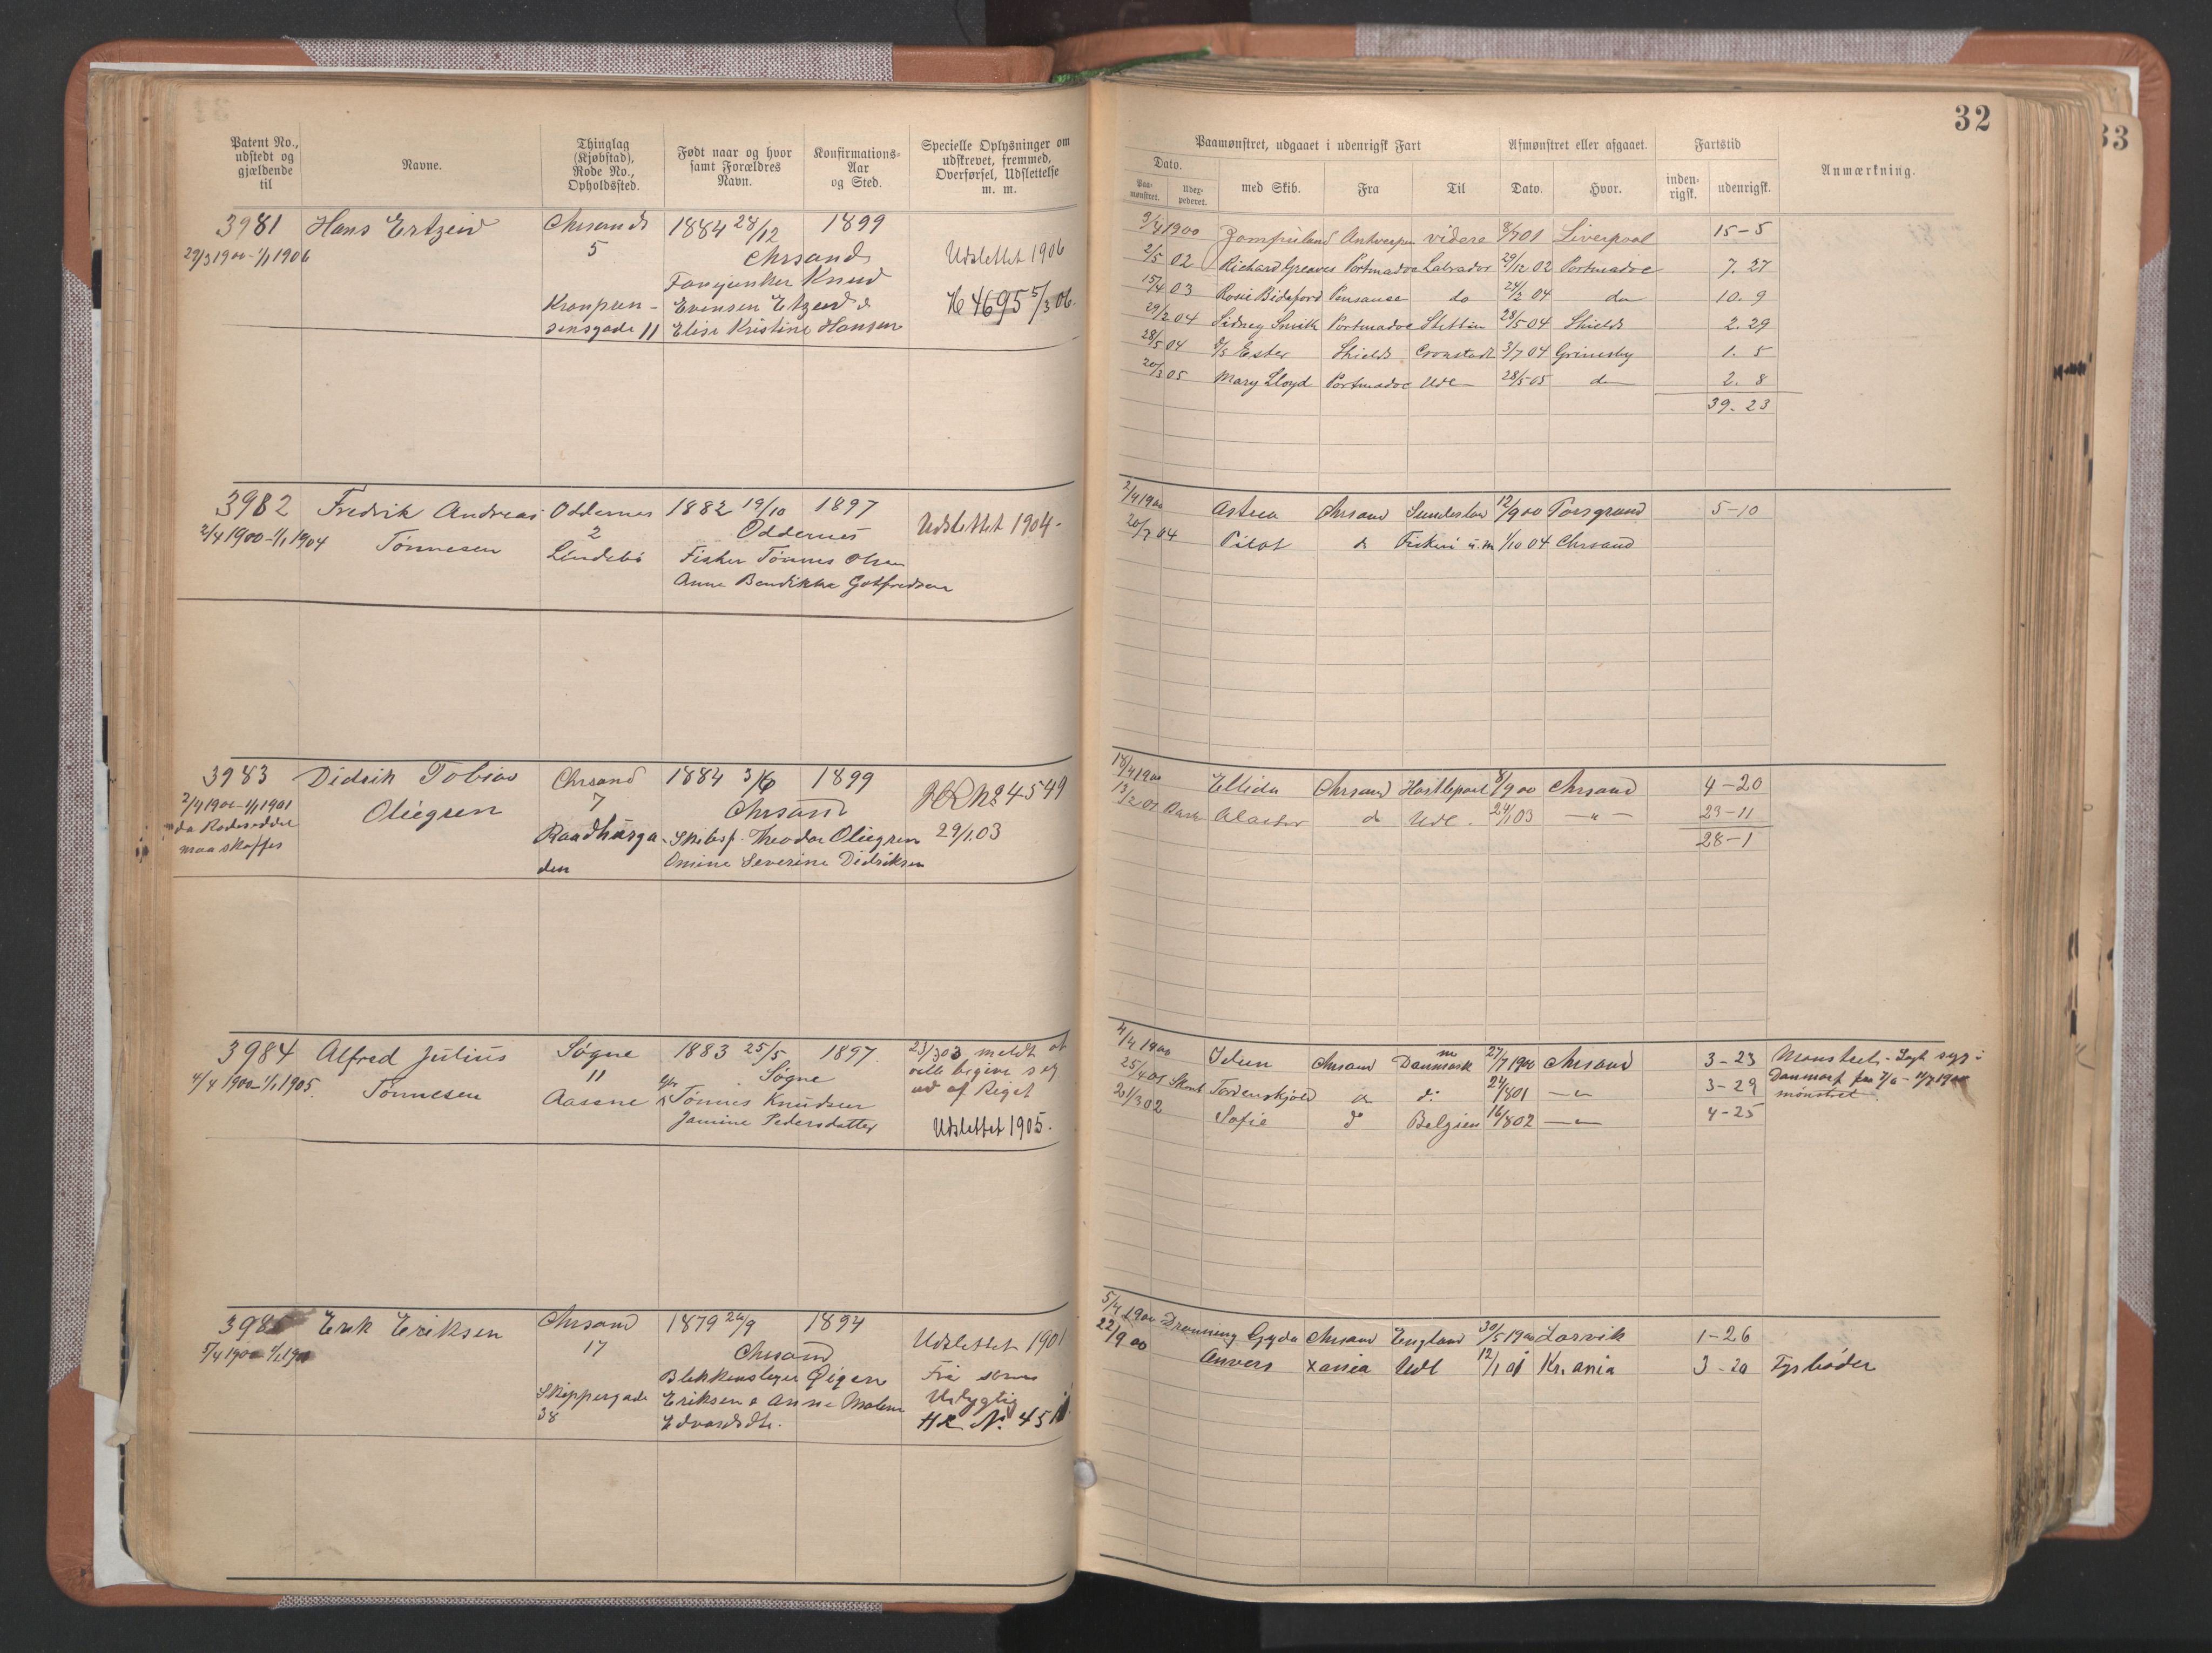 32
33
Patent No., udstedt og gjældende til
Navne.
Thinglag (Kjøbstad), Rode No., Opholdssted.
Født naar og hvor samt Forældres Navn.
Konfirmations-Aar og Sted.
Specielle Oplysninger om udskrevet, fremmed, Overførsel, Udslettelse m. m.
Paamønstret, udgaaet i udenrigsk Fart
Afmønstret eller afgaaet.
Fartstid
Anmærkning.
Dato.
Paa-mønstret.
Uder-pederet.
med Skib.
Fra
Til
Dato.
Hvor.
inden-rigsk.
udenrigsk.
3981 Hans Ertzeid Chrsand 1884 28/12 1899
29/3 1900-1/1 1906 5 Chrsand Udslettet 1906
Knud
Evensen Etzeid & H 4695 5/3 06.
sensgade 11 Elise Kristine Hansen
3/4 1900 Antwerpen videre 8/7 01 Liverpool 15-5
2/5 02 Richard Greaves Portmadoc Labrador 29/12 02 Portmadoc 7. 27
15/4 03 Rosie Bideford Pensance do 24/2 04 do 10. 9
29/2 04 Sidney Smith Portmadoc Stettin 28/5 04 Shields 2. 29
28/5 04 Ester Shields Cronstadt 3/7 04 Grimsby 1. 5
20/3 05 Mary Lloyd Portmadoc Udl 28/5 05 do 2. 8
39. 23
3982 Fredrik Andreas Oddernes 1882 19/10 1897
2/4 1900-1/1 1904 Tønnesen 2 Oddernes Udslettet 1904.
Lindebø Fisker Tønnes Olsen
Anne Bendikke Gotfredsen
2/4 1900 Astrea Chrsand Sunderland 12/9 00 Porsgrund 5-10
20/7 04 Pilot d Fiskeri 1/10 04 Chrsand
3983 Didrik Tobias Chrsand 1884 3/6 1899
2/4 1900-1/1 1901 Oliegren 7 Chrsand HR No 4549
da Rodeseddel Raadhusga- Theodor Oliegren 29/1.03
maa skaffes den Omine Severine Didriksen
18/4 1900 Ellida Chrsand Hartlepool 8/9 00 Chrsand 4-20
13/2 01 Alaster d Udl. 24/1 03 -"- 23-11
28-1
3984 Alfred Julius Søgne 1883 25/5 1897. 23/3 03 meldt at
4/4 1900-1/1 1905. Tønnesen 11 Søgne ville begive sig
Aasene Tønnes Knudsen ud af Riget
Janine Pedersdatter Udslettet 1905.
4/4 1900 Idun Chrsand Danmark 27/7 1900 Chrsand 3-23
25/4 01 Tordenskjold d d: 24/8 01 -"- 3-29
21/3 02 Sofie d Belgien 16/8 02 -"- 4-25
Danmark
mønstret
Erik Eriksen Chrsand 1879 1894
5/4 1900 17 Chrsand Udslettet 1901
Blikkenslager
Skippergade Eriksen & Anne Malene
38 Edvardsdtr.
HR No.
5/4 1900 Dronning Gyda Chrsand England 30/5 1900 Larvik 1-26
22/9 00 Anvers Xania Udl 12/1 01 Kr.ania 3-20